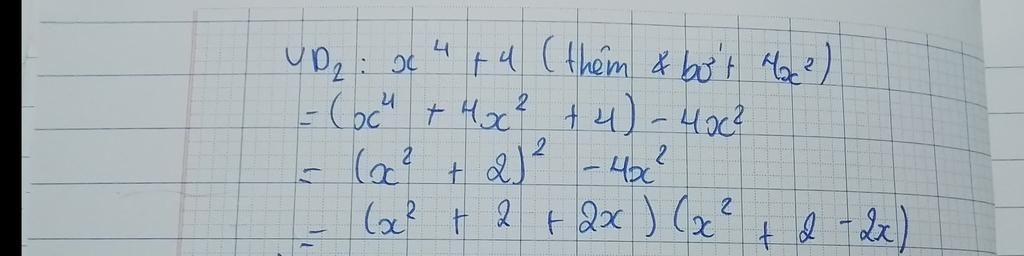 VD₂: x⁴ + 4 (thêm & bớt 4x²)
= (x⁴ + 4x² + 4) - 4x²
= (x² + 2)² - 4x²
= (x² + 2 + 2x) (x² + 2 - 2x)